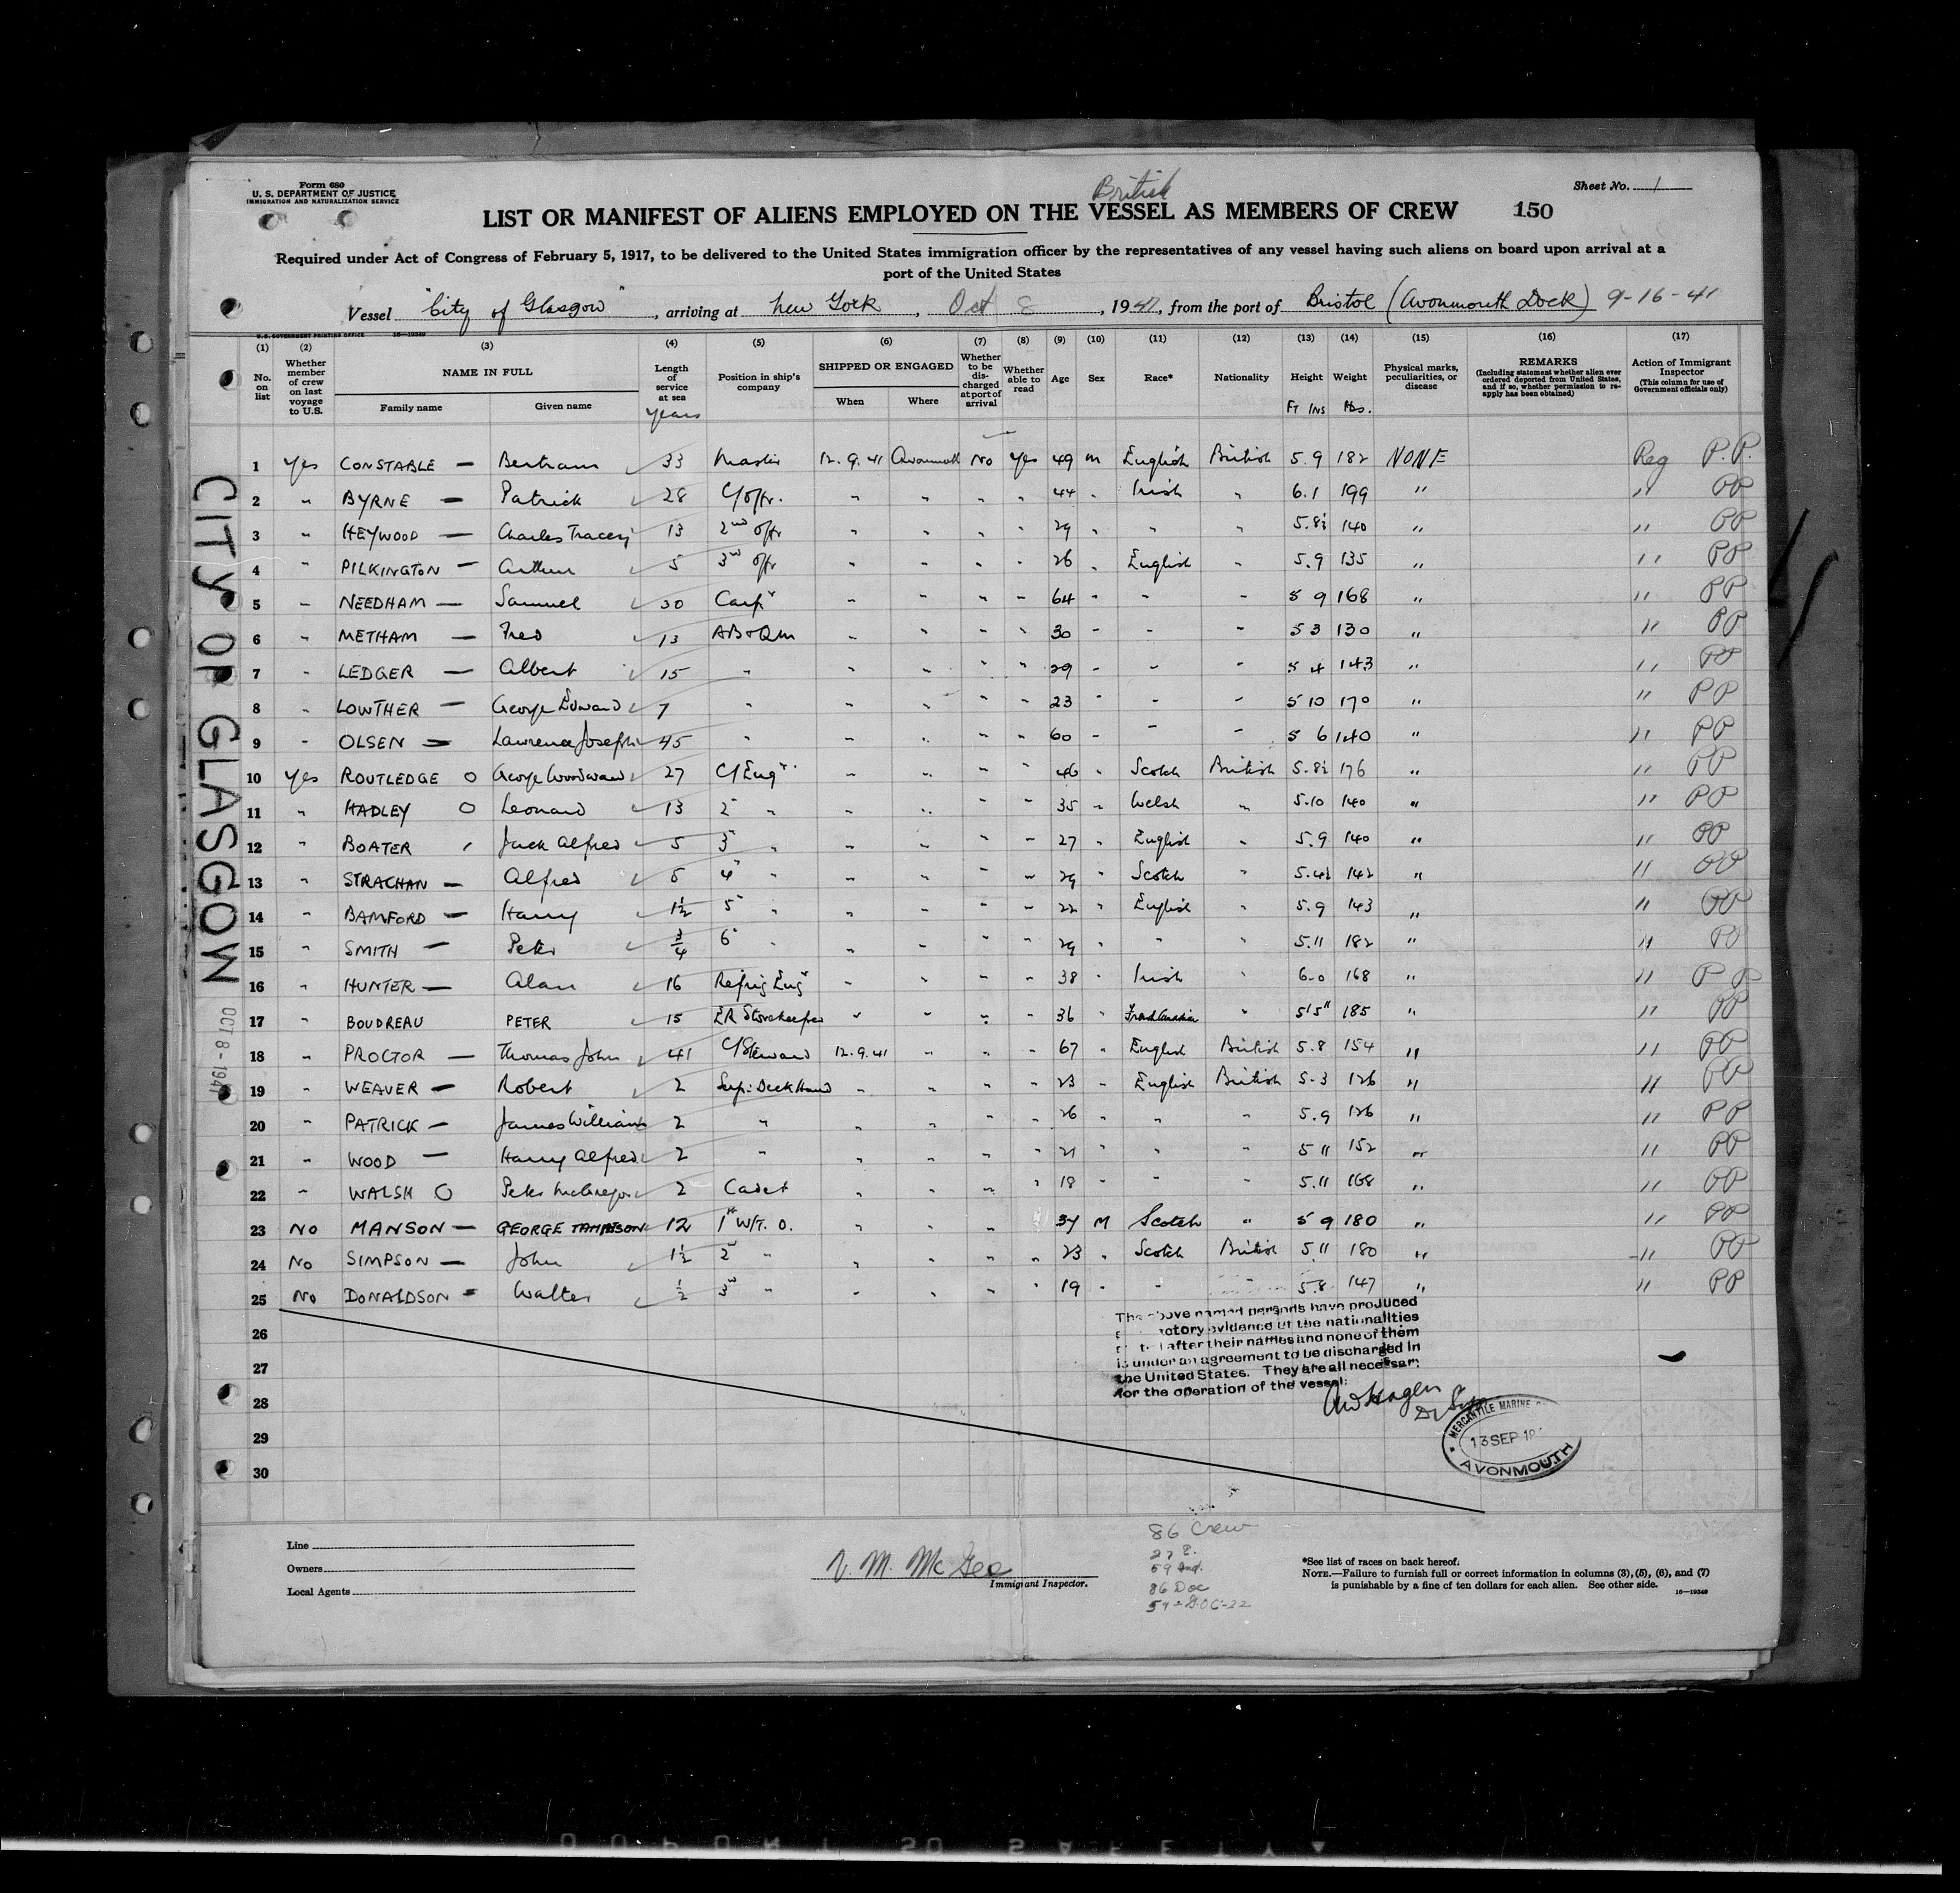 British
Form 680
U. S. DEPARTMENT OF JUSTICE
IMMIGRATION AND NATURALIZATION SERVICE
Sheet No. 1
LIST OR MANIFEST OF ALIENS EMPLOYED ON THE VESSEL AS MEMBERS OF CREW 150
Required under Act of Congress of February 5, 1917, to be delivered to the United States immigration officer by the representatives of any vessel having such aliens on board upon arrival at a
port of the United States
Vessel "City of Glasgow", arriving at New York, Oct 8, 1941, from the port of Bristol (Avonmouth Dock) 9-16-41
U.S. GOVERNMENT PRINTING OFFICE 16—19349
(1) No. on list
(2) Whether member of crew on last voyage to U.S.
(3) NAME IN FULL Family name Given name
(4) Length of service at sea years
(5) Position in ship's company
(6) SHIPPED OR ENGAGED When Where
(7) Whether to be discharged at port of arrival
(8) Whether able to read
(9) Age
(10) Sex
(11) Race*
(12) Nationality
(13) Height Ft Ins
(14) Weight lbs.
(15) Physical marks, peculiarities, or disease
(16) REMARKS (Including statement whether alien ever ordered deported from United States, and if so, whether permission to reapply has been obtained)
(17) Action of Immigrant Inspector (This column for use of Government officials only)
1 Yes CONSTABLE — Bertram 33 Master 12.9.41 Avonmouth No Yes 49 M English British 5.9 182 NONE Reg P.P.
2 " BYRNE — Patrick 28 C/Offr. " " " " 44 " Irish " 6.1 199 " " PP
3 " HEYWOOD — Charles Tracey 13 2nd Offr " " " " 29 " " " 5.8½ 140 " " PP
4 " PILKINGTON — Arthur 5 3rd Offr " " " " 26 " English " 5.9 135 " " PP
5 " NEEDHAM — Samuel 30 Carpr " " " " 64 " " " 5 9 168 " " PP
6 " METHAM — Fred 13 AB & QM " " " " 30 " " " 5 3 130 " " PP
7 " LEDGER — Albert 15 " " " " " 29 " " " 5 4 143 " " PP
8 " LOWTHER — George Edward 7 " " " " " 23 " " " 5 10 170 " " PP
9 " OLSEN — Lawrence Joseph 45 " " " " " 60 " " " 5 6 140 " " PP
10 Yes ROUTLEDGE O George Woodward 27 C/Engr " " " " 46 " Scotch British 5.8½ 176 " " PP
11 " HADLEY O Leonard 13 2 " " " " " 35 " Welsh " 5.10 140 " " PP
12 " BOATER Jack Alfred 5 3 " " " " " 27 " English " 5.9 140 " " PP
13 " STRACHAN — Alfred 5 4 " " " " " 29 " Scotch " 5.4½ 142 " " PP
14 " BAMFORD — Harry 1½ 5 " " " " " 22 " English " 5.9 143 " " PP
15 " SMITH — Peter ¾ 6 " " " " " 29 " " " 5.11 182 " " PP
16 " HUNTER — Alan 16 Refrig Engr " " " " 38 " Irish " 6.0 168 " " PP
17 " BOUDREAU PETER 15 ER Storekeeper " " " " 36 " " 5'5" 185 " " PP
18 " PROCTOR — Thomas John 41 C/Steward 12.9.41 " " " 67 " English British 5.8 154 " " PP
19 " WEAVER — Robert 2 Sup: Deck Hand " " " " 23 " English British 5.3 126 " " PP
20 " PATRICK — James William 2 " " " " " 26 " " " 5.9 126 " " PP
21 " WOOD — Harry Alfred 2 " " " " " 21 " " " 5 11 152 " " PP
22 " WALSH O Peter McGregor 2 Cadet " " " " 18 " " " 5.11 168 " " PP
23 No MANSON — GEORGE 12 1st W/T. O. " " " 34 M Scotch " 5 9 180 " " PP
24 No SIMPSON — John 1½ 2 " " " " " 23 " Scotch British 5 11 180 " " PP
25 No DONALDSON — Walter ½ 3rd " " " " " 19 " " 5.8 147 " " PP
26
27
28
29
30
CITY OF GLASGOW
OCT 8 - 1941
The above named persons have produced
satisfactory evidence of the nationalities
stated after their names and none of them
is under an agreement to be discharged in
the United States. They are all necessary
for the operation of the vessel.
MERCANTILE MARINE
13 SEP 19
AVONMOUTH
Line
Owners
Local Agents
V. M. McGee
Immigrant Inspector.
86 Crew
27
59
86 Doc
*See list of races on back hereof.
NOTE.—Failure to furnish full or correct information in columns (3), (5), (6), and (7)
is punishable by a fine of ten dollars for each alien. See other side. 16—19349
DUPONT SO SAFETY